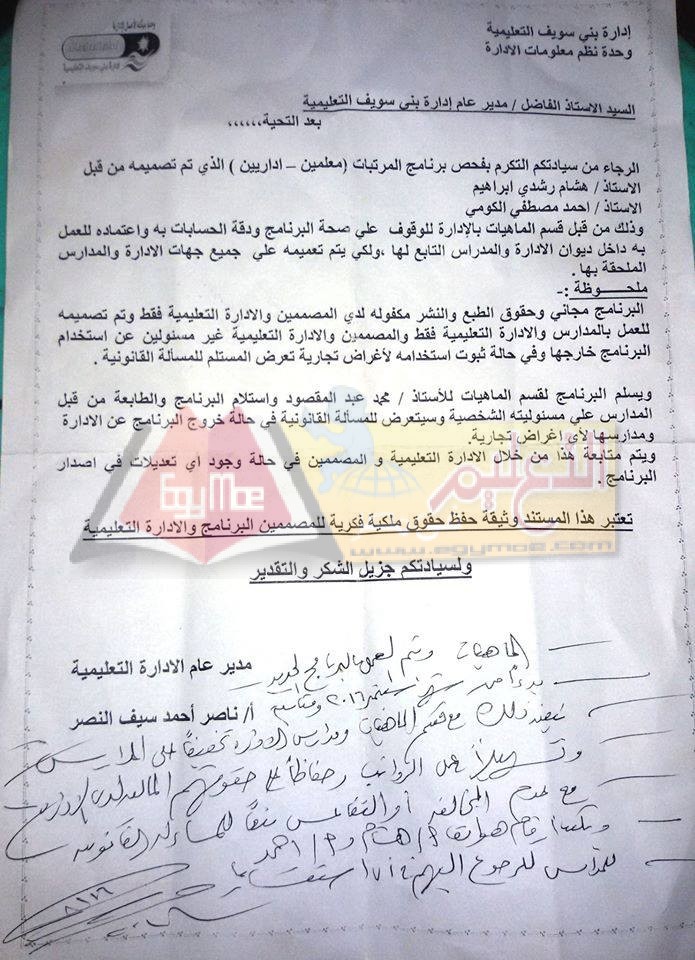 إدارة بني سويف التعليمية
وحدة نظم معلومات الادارة
السيد الاستاذ الفاضل / مدير عام إدارة بني سويف التعليمية
بعد التحية،،،،،،
الرجاء من سيادتكم التكرم بفحص برنامج المرتبات (معلمين – اداريين ) الذي تم تصميمه من قبل
الاستاذ / هشام رشدي ابراهيم
الاستاذ / احمد مصطفي الكومي
وذلك من قبل قسم الماهيات بالإدارة للوقوف علي صحة البرنامج ودقة الحسابات به واعتماده للعمل
به داخل ديوان الادارة والمدراس التابع لها ،ولكي يتم تعميمه علي جميع جهات الادارة والمدارس
الملحقة بها .
ملحـــوظة :-
البرنامج مجاني وحقوق الطبع والنشر مكفوله لدي المصممين والادارة التعليمية فقط وتم تصميمه
للعمل بالمدارس والادارة التعليمية فقط والمصممين والادارة التعليمية غير مسئولين عن استخدام
البرنامج خارجها وفي حالة ثبوت استخدامه لأغراض تجارية تعرض المستلم للمسألة القانونية .
ويسلم البرنامج لقسم الماهيات للأستاذ / محمد عبد المقصود واستلام البرنامج والطابعة من قبل
المدارس علي مسئوليته الشخصية وسيتعرض للمسألة القانونية في حالة خروج البرنامج عن الادارة
ومدارسها لأي اغراض تجارية.
ويتم متابعة هذا من خلال الادارة التعليمية و المصممين في حالة وجود أي تعديلات في اصدار
البرنامج .
تعتبر هذا المستند وثيقة حفظ حقوق ملكية فكرية للمصممين البرنامج والادارة التعليمية
ولسيادتكم جزيل الشكر والتقدير
مدير عام الادارة التعليمية
أ/ ناصر أحمد سيف النصر
الماهيات ويتم العمل بالبرنامج الجديد
بدءاً من شهر سبتمبر ٢٠١٦
تنفيذ ذلك مع قسم الماهيات ومدارس الادارة تخفيفاً على المدارس
وتسهيلاً عمل الرواتب وحفاظاً على حقوقهم
مع عدم المخالفة أو التقاعس منعاً للمساءلة القانونية
أ/ هشام و أ/ احمد
للمدارس للرجوع اليهم
التعليم
EGYMOE
www.egymoe.com